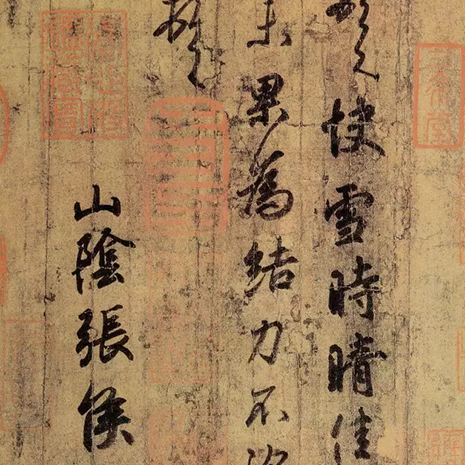 快雪時晴佳
未果為結力不次
山陰張侯